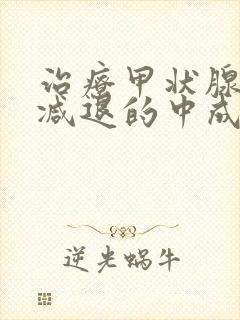 治疗甲状腺
减退的中成
逆光蜗牛